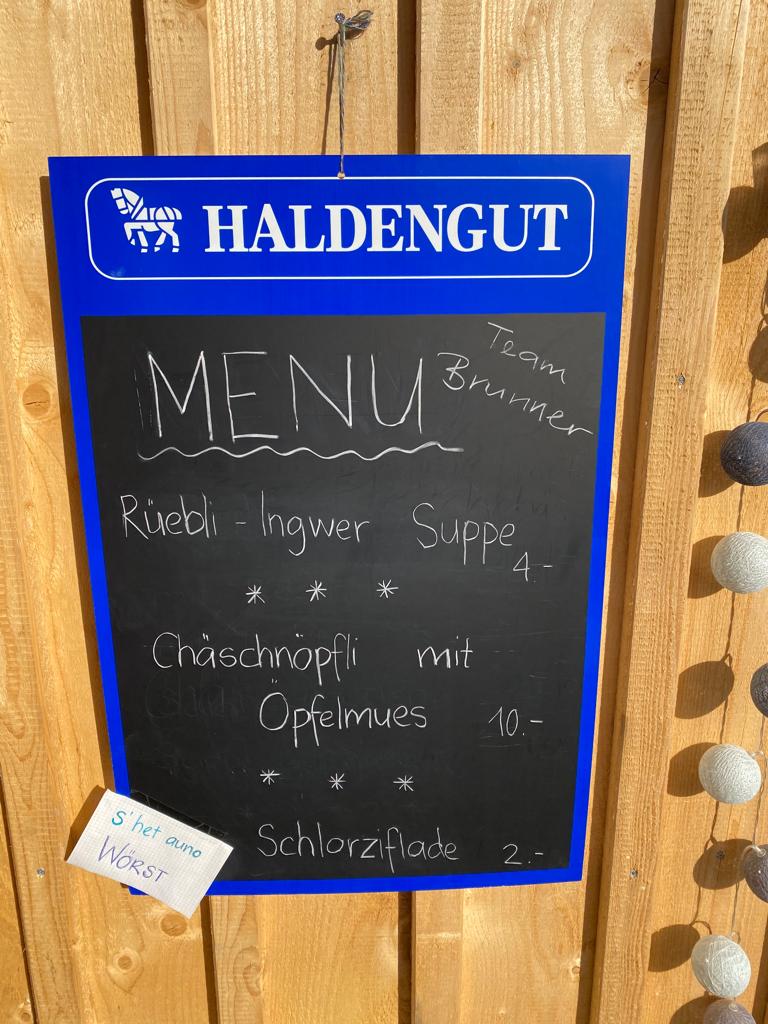 HALDENGUT
MENU
Team
Brunner
Rüebli - Ingwer Suppe
4.-
* * *
Chäschnöpfli mit
Öpfelmues 10.-
* * *
Schlorziflade 2.-
s'het auno
WÖRST